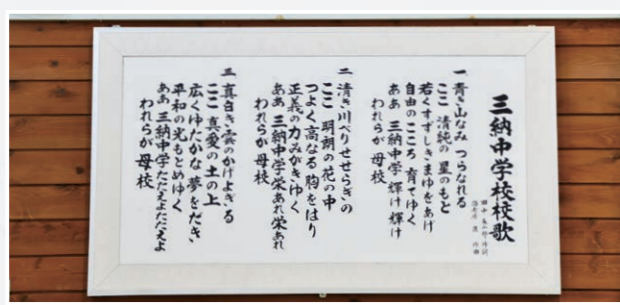 三納中学校校歌
一 青き山なみ つらなれる
ここ 清純の 星のもと
若くすずしきまゆをあげ
自由のこころ 育てゆく
ああ 三納中学 輝け 輝け
われらが 母校
二 清き川べりせせらぎの
ここ 明朗の花の中
つよく高なる 胸をはり
正義の力みがきゆく
ああ 三納中学栄あれ栄あれ
われらが 母校
三 真白き雲のかげよぎる
ここ 真愛の土の上
広くゆたかな 夢をだき
平和の光もとめゆく
ああ 三納中学たたえよたたえよ
われらが 母校